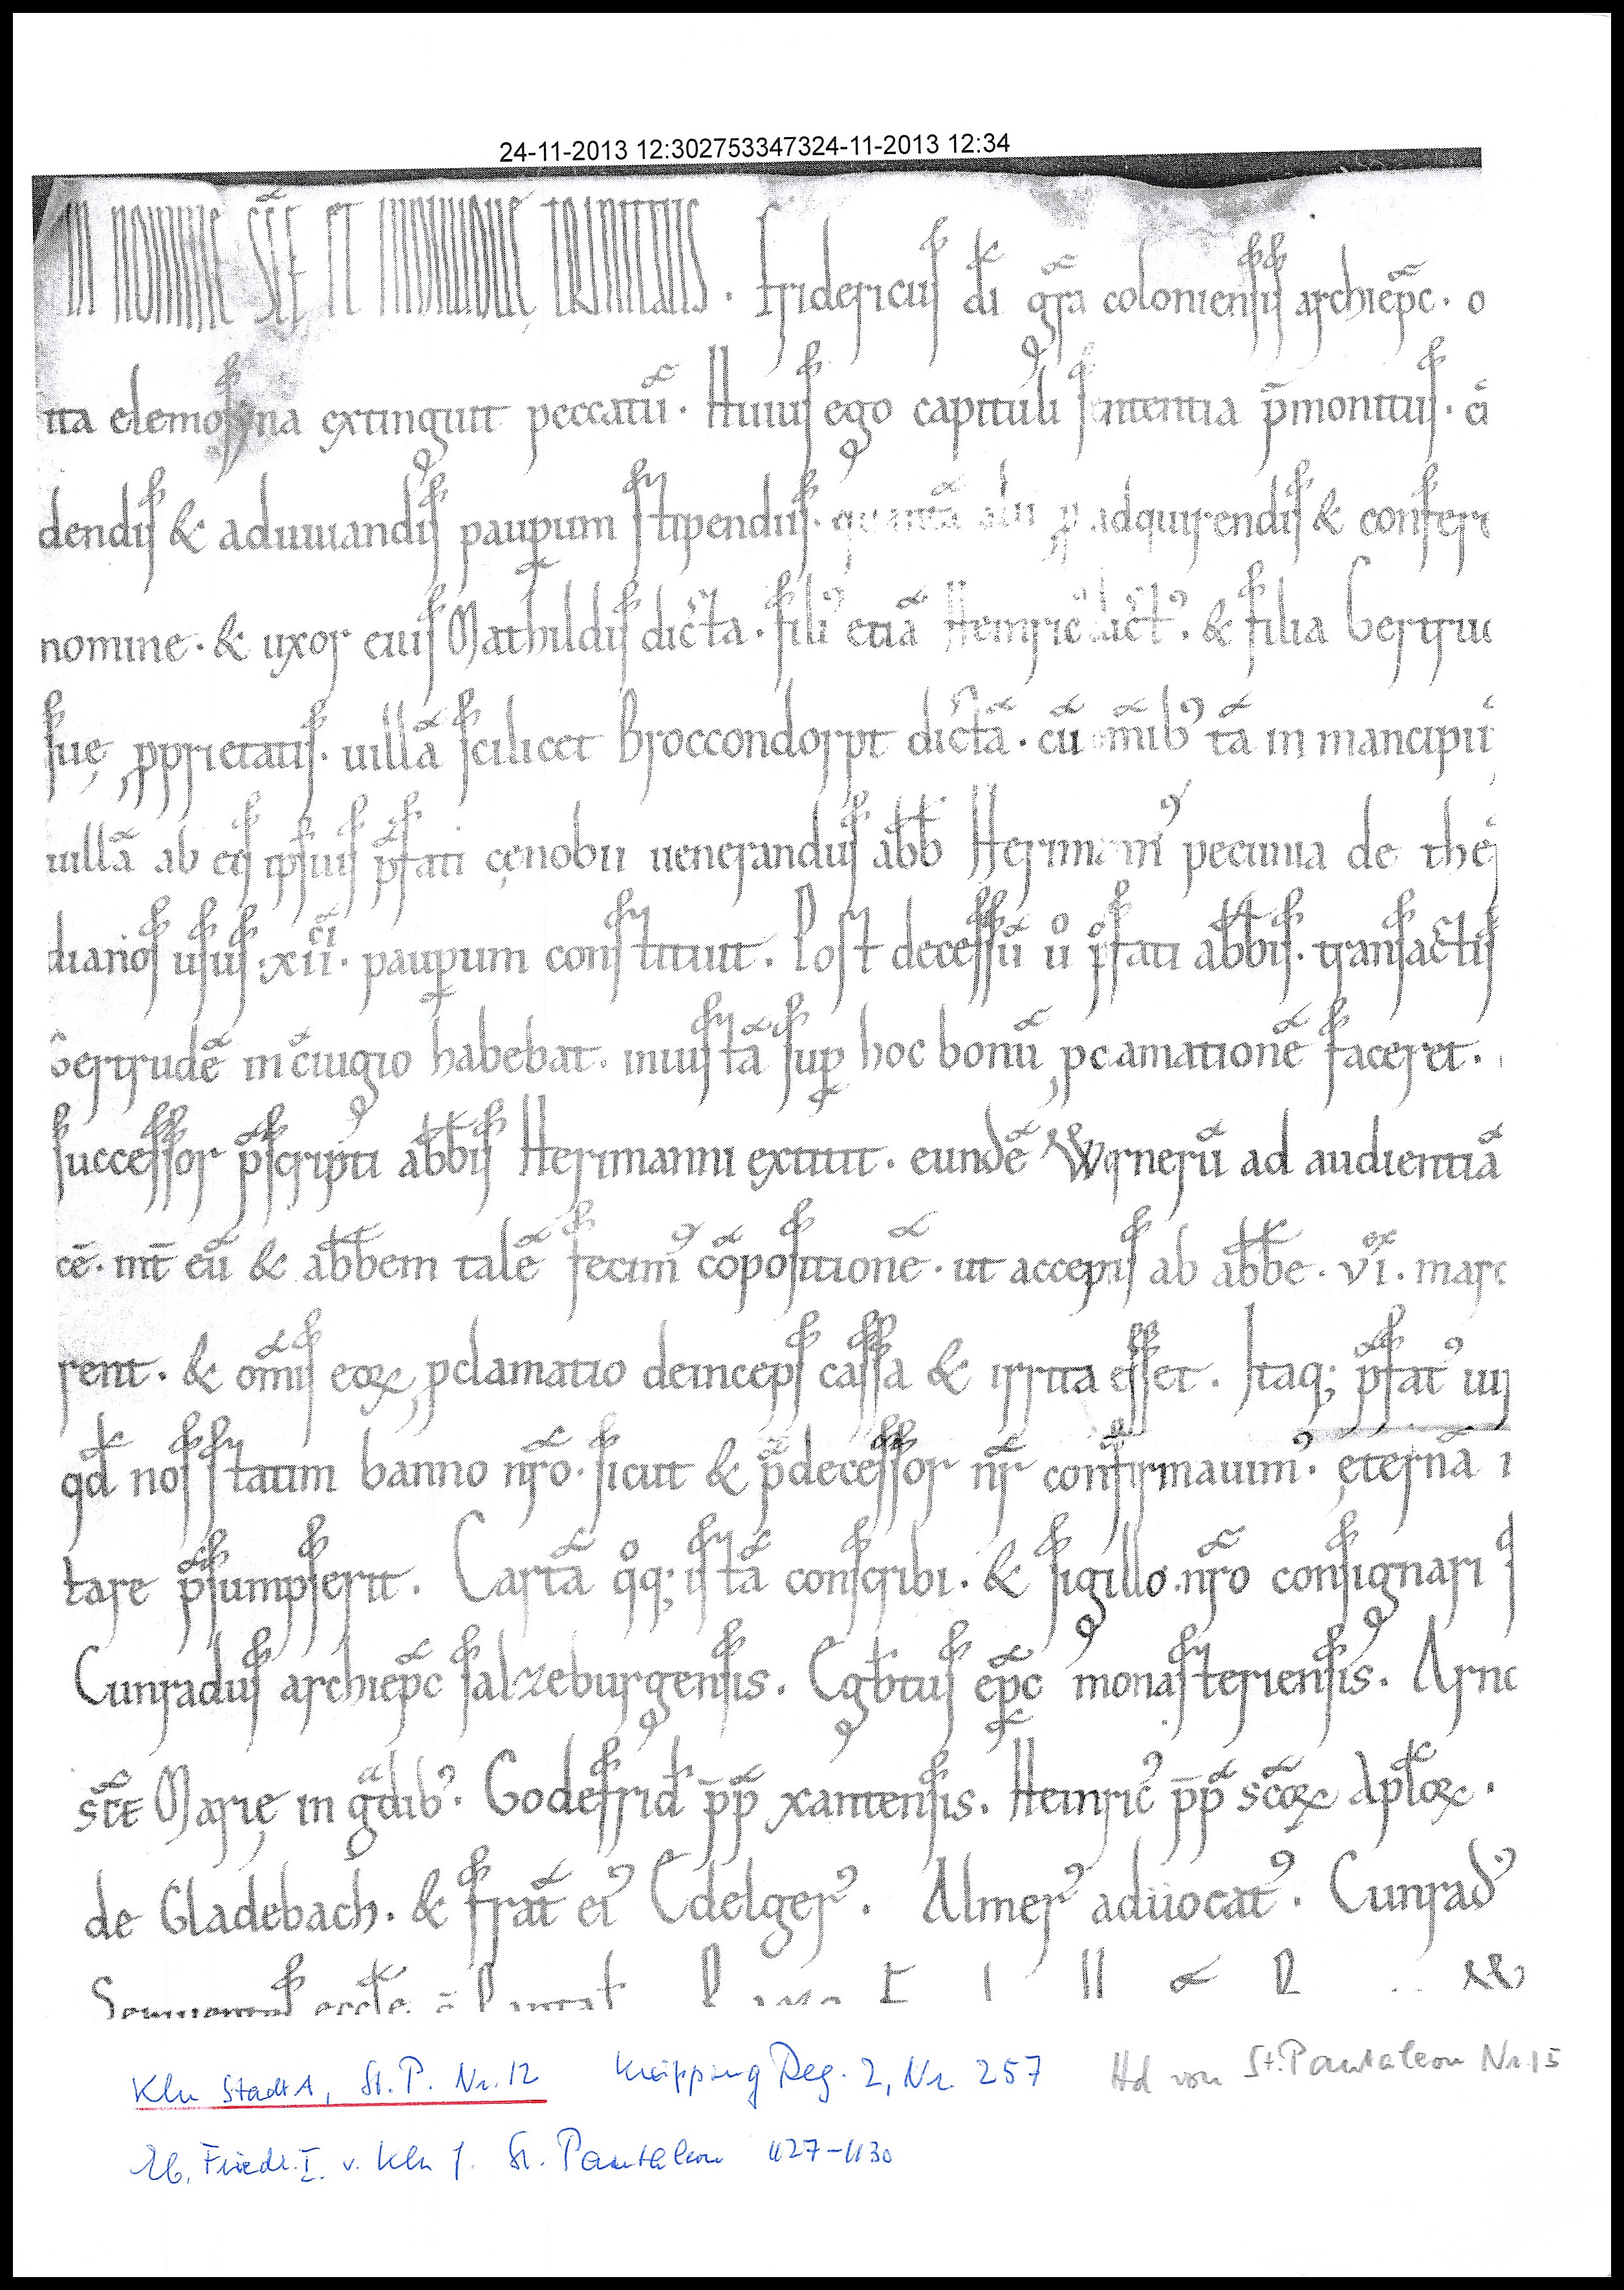 24-11-2013 12:302753347324-11-2013 12:34
IN NOMINE SC̄E ET INDIUIDUĘ TRINITATIS. Fridericus dī gr̄a coloniensis archiep̄c. o
ita elemosyna extinguit peccatū. Huius ego capituli sententia p̄monitus.
dendis & adiuuandis paup̲um stipendiis. quantā p̲ adquirendis & confer
nomine. & uxor eius Mathildis dicta. fili᾽ etiā Heinric᾽ dict᾽. & filia Gertru
suę ꝓprietatis. uillā scilicet Broccondorpt dictā. cū omīb᾽ tā in mancipii
uillā ab eis ipsius p̄fati cęnobii uenerandus abb̄ Herimann᾽ pecunia de the
diarios usus .xii. paup̲um constituit. Post decessū u͛ p̄fati abb̄is. transactis
Gertrudē in c̄iugio habebat. iniustā sup̲ hoc bonū ꝓcamationē faceret.
successor p̄scripti abb̄is Herimanni extitit. eundē Wernerū ad audientiā
cē. int̄ eū & abb̄em talē fecim᾽ cōpositionē. ut acceptis ab abb̄e. vi. marc
rent. & om̄is eoꝝ ꝓclamatio deinceps cassa & irrita esset. Itaq; p̄fat᾽
qd̄ nos statim banno nr̄o. sicut & p̄decessor nr̄ confirmauim᾽. ęternā
tare p̄sumpserit. Cartā qͦq; istā conscribi. & sigillo nr̄o consignari
Cunradus archiep̄c salzeburgensis. Egb̄tus ep̄c monasteriensis. Arno
sc̄e Marię in gͣdib᾽. Godefrid̄ p̄p̄ xantensis. Heinric᾽ p̄p̄ sc̄oꝝ Apl̄oꝝ.
de Gladebach. & frat̄ ei᾽ Edelger᾽. Almer᾽ aduocat᾽. Cunrad᾽
Kln StadtA, St. P. Nr. 12 Knipping Reg. 2, Nr. 257 Hd von St. Pantaleon Nr. 15
Eb. Friedr. I. v. Kln f. St. Pantaleon 1127–1130